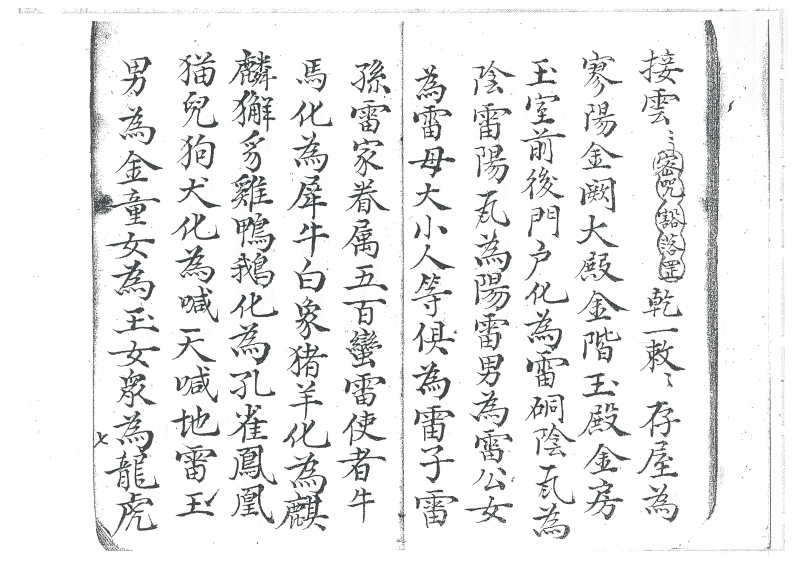 接雲〻密咒豁落罡乾一敕〻存屋為
寥陽金闕大殿金階玉殿金房
玉室前後門户化為雷硐陰瓦為
陰雷陽瓦為陽雷男為雷公女
為雷母大小人等俱為雷子雷
孫雷家眷属五百蠻雷使者牛
馬化為犀牛白象猪羊化為麒
麟獬豸雞鴨鵝化為孔雀鳳凰
猫兒狗犬化為喊天喊地雷王
男為金童女為玉女眾為龍虎